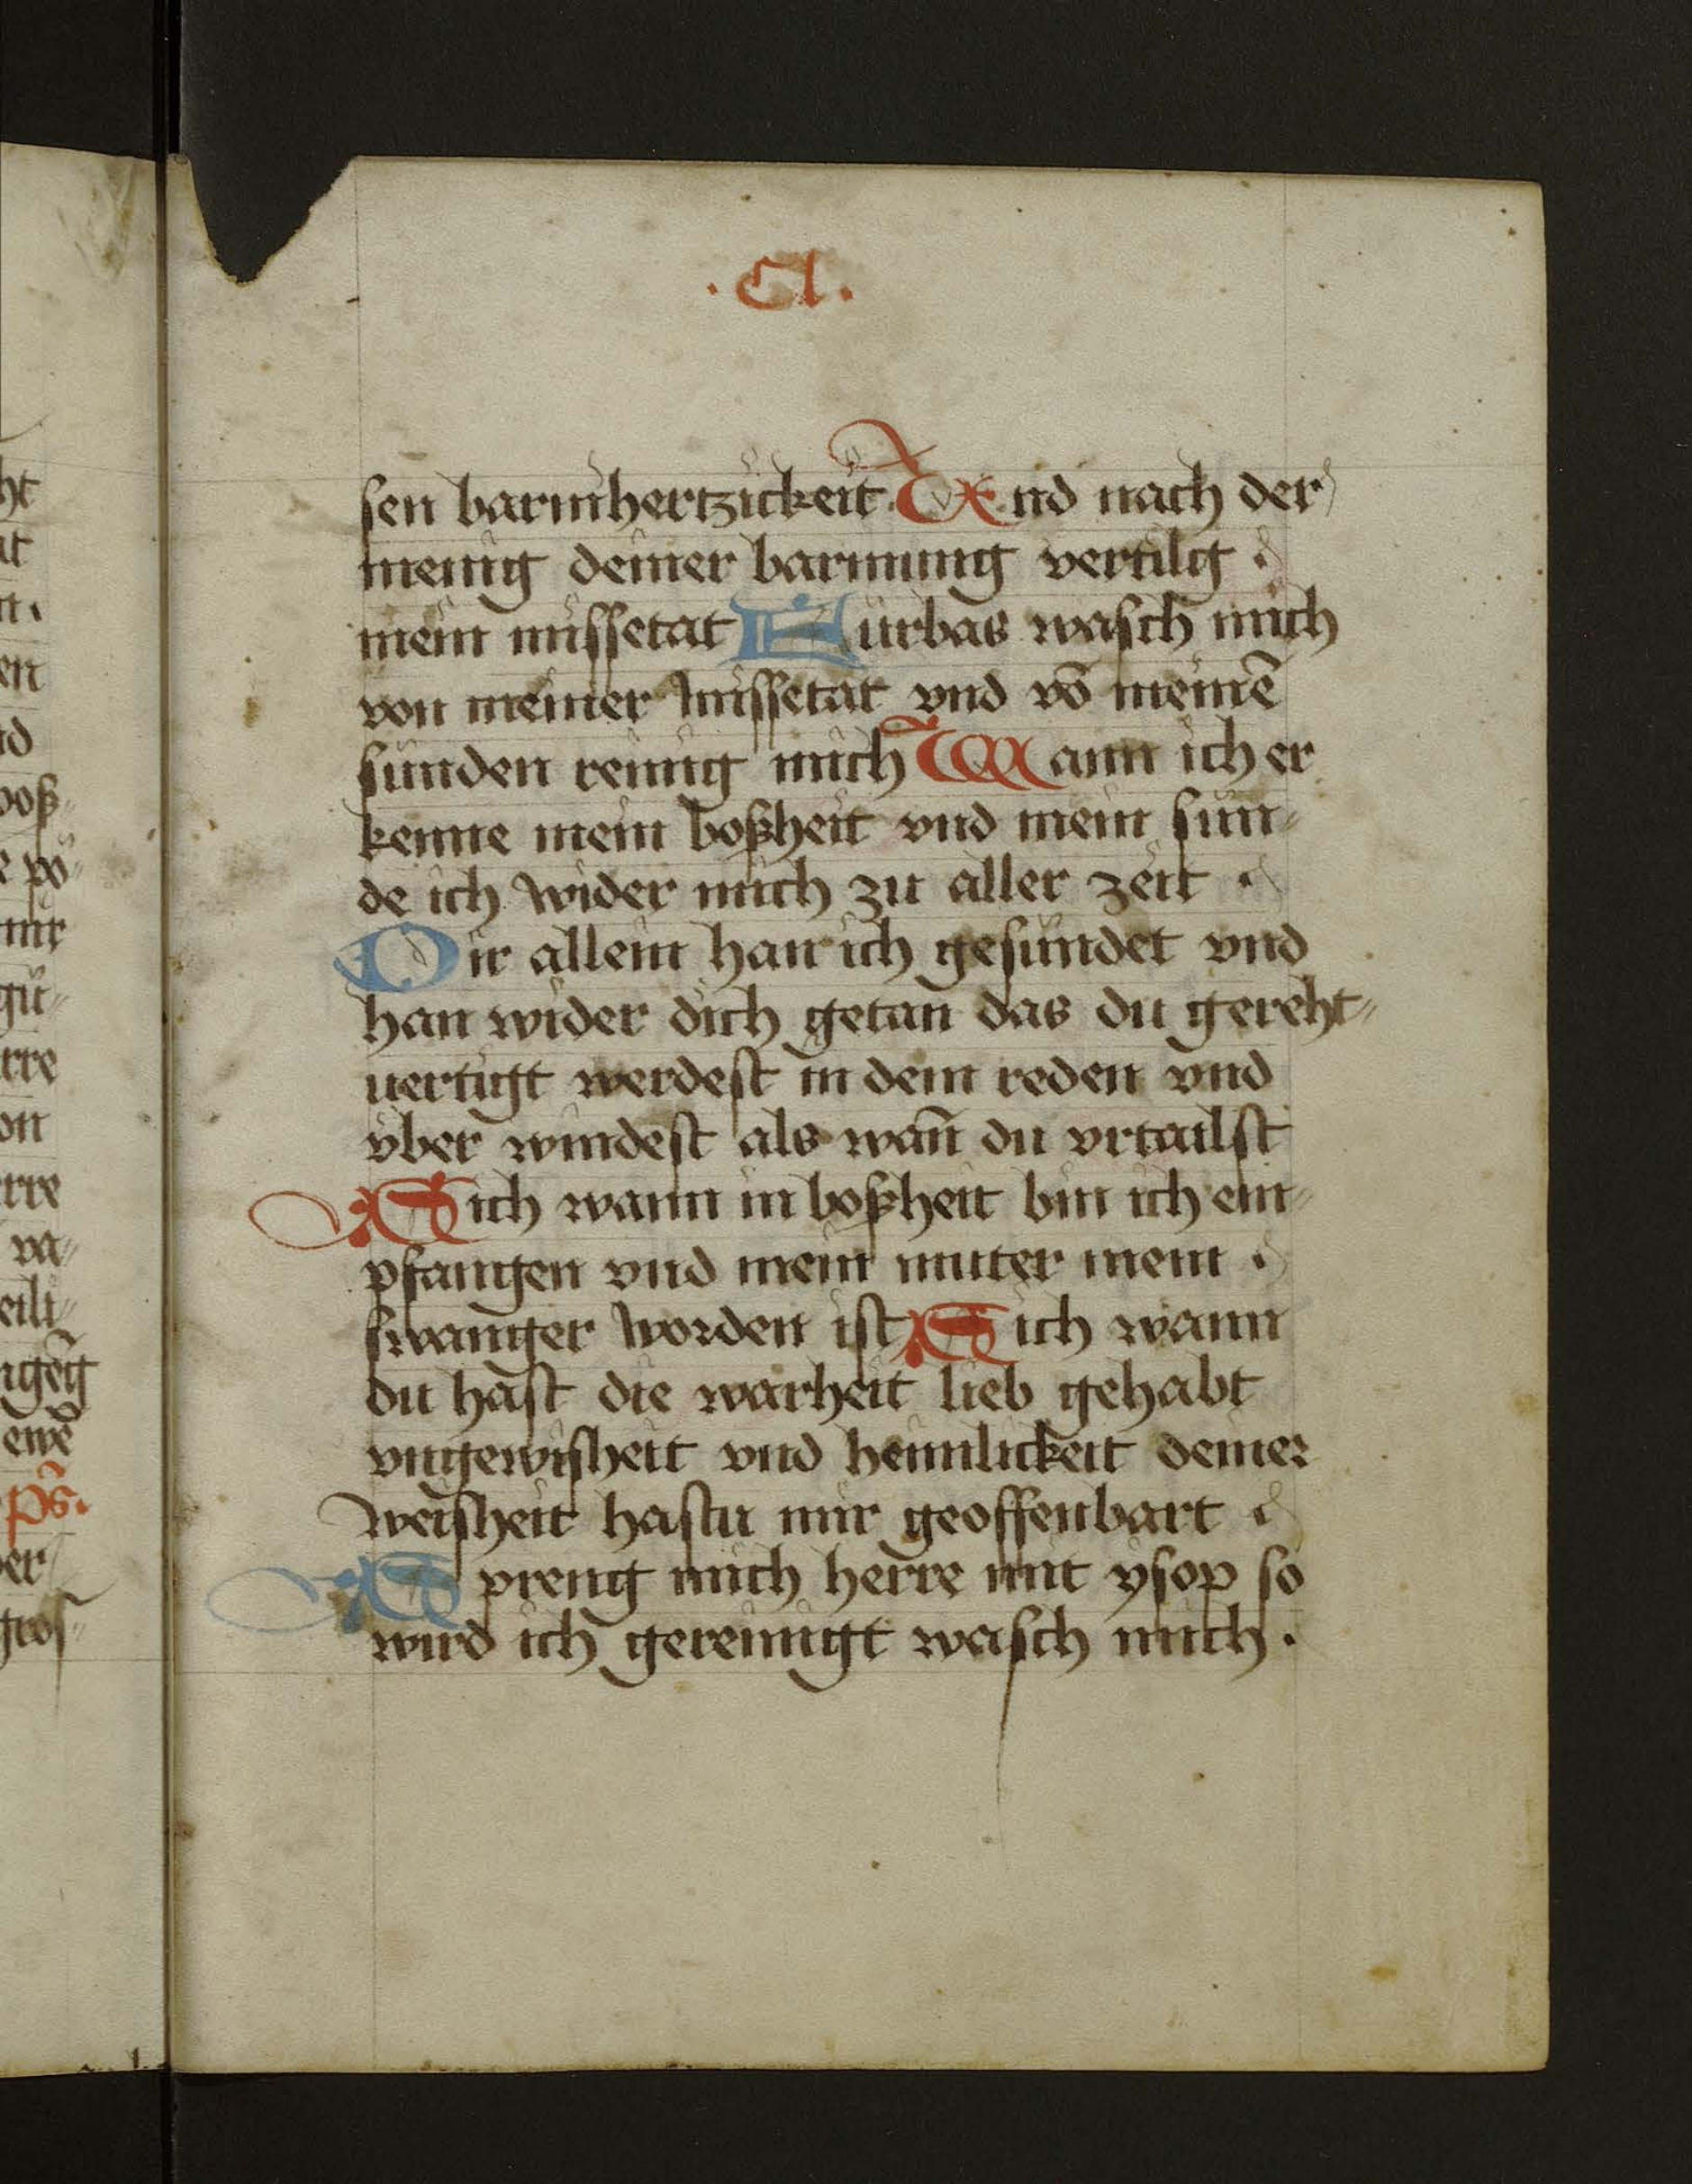 .Cl.
sen barmhertzickeit. Vnd nach der
menig deiner barmung vertilg .
mein missetat Furbas wasch mich
von meiner missetat vnd vō meinē
sunden reinig mich Wann ich er
kenne mein boßheit vnd mein sun⸗
de ich wider mich zu aller zeit .
Dir allein han ich gesundet vnd
han wider dich getan das du gereht⸗
uertigt werdest in dein reden vnd
vber windest als wan̄ du vrtailst
Sich wann in boßheit bin ich em⸗
pfangen vnd mein muter mein .
swanger worden ist Sich wann
du hast die warheit lieb gehabt
vngewisheit vnd heimlickeit deiner
weisheit hastu mir geoffenbart .
Spreng mich herre mit ysop so
wird ich gereinigt wasch mich .